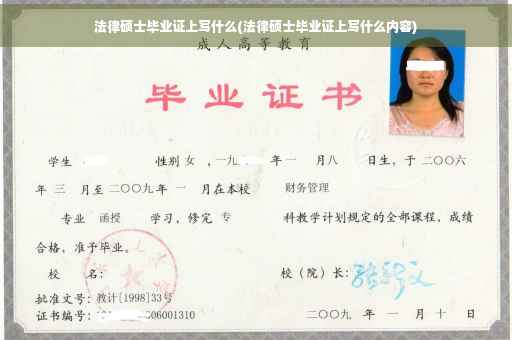 法律硕士毕业证上写什么(法律硕士毕业证上写什么内容)
成人高等教育
毕业证书
学生 性别 女 ,一九 年一 月八 日生,于二〇〇六
年 三 月至二〇〇九年 一 月在本校 财务管理
专业 函授 学习,修完 专 科教学计划规定的全部课程,成绩
合格,准予毕业。
校 名: 校(院)长:
批准文号:教计[1998]33号
证书编号: 06001310 二〇〇九 年 一 月 十 日